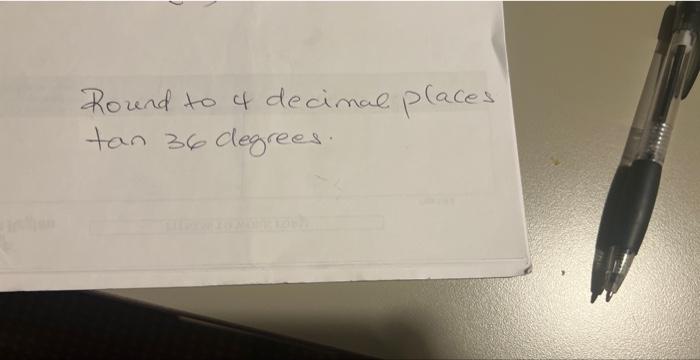 Round to 4 decimal places
tan 36 degrees.